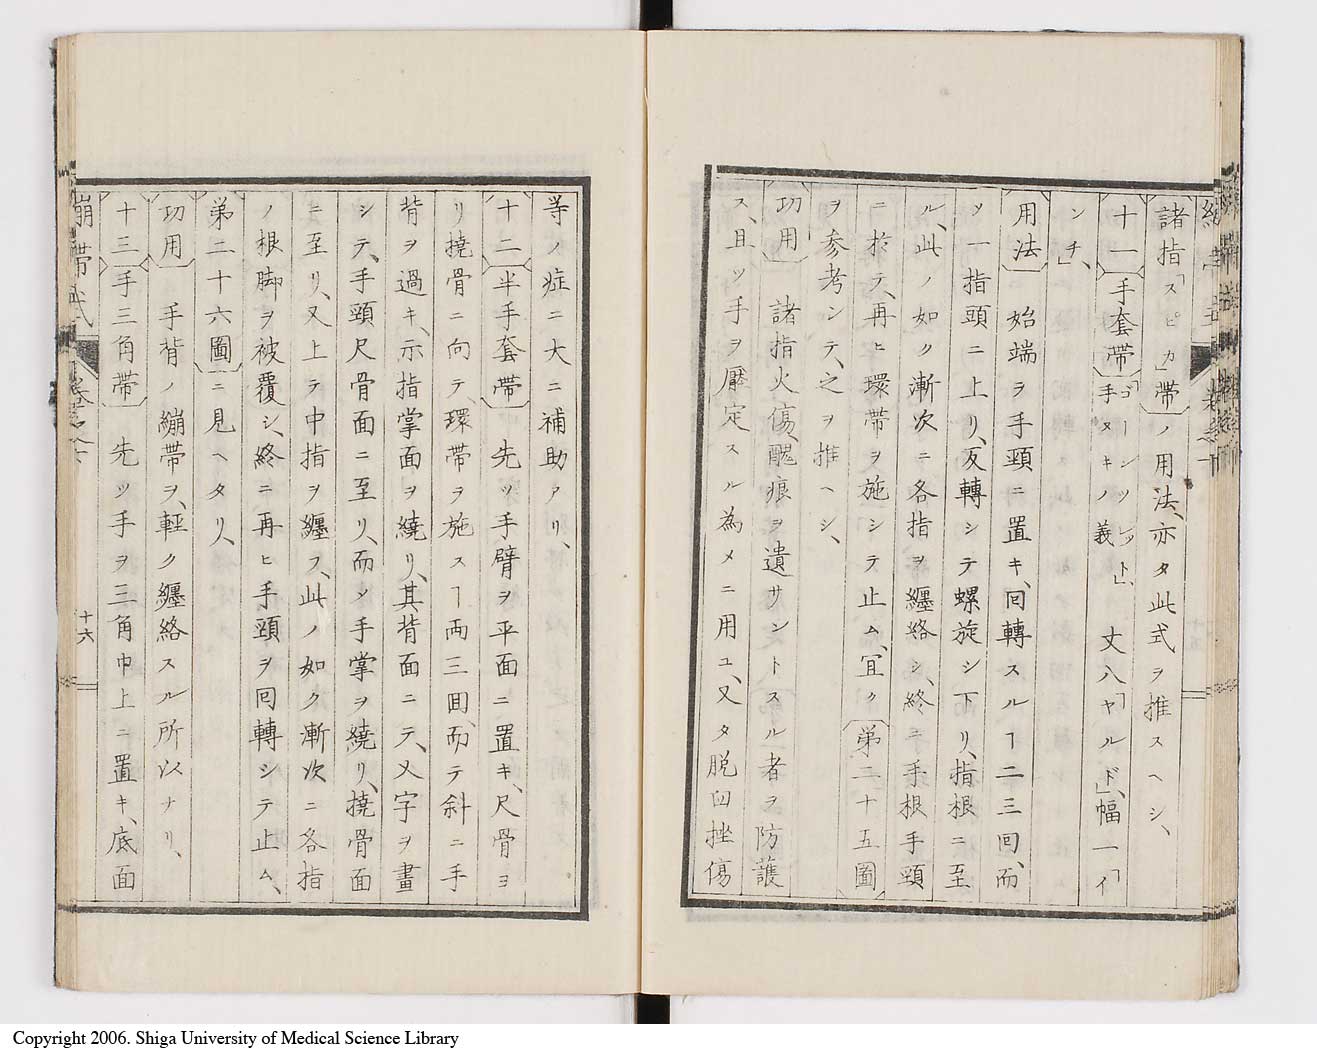 諸指「スピカ」帶ノ用法、亦タ此式ヲ推スヘシ、
十一 手套帶 「ゴーンツレット」手ヌキノ義 丈八「ヤルド」、幅一「イ
ンチ」、
用法 始端ヲ手頸ニ置キ、回轉スルヿ二三回、而
メ一指頭ニ上リ、反轉シテ螺旋シ下リ、指根ニ至
ル、此ノ如ク漸次ニ各指ヲ纏絡シ、終ニ手根手頸
ニ於テ、再ヒ環帶ヲ施シテ止ム、冝ク第二十五圖
ヲ参考シテ、之ヲ推ヘシ、
功用 諸指火傷、醜痕ヲ遺サントスル者ヲ防護
ス、且ツ手ヲ壓定スル為メニ用ユ、又タ脱臼挫傷
等ノ症ニ大ニ補助アリ、
十二 半手套帶 先ツ手臂ヲ平面ニ置キ、尺骨ヨ
リ撓骨ニ向テ、環帶ヲ施スヿ両三回、而テ斜ニ手
背ヲ過キ、示指掌面ヲ繞リ、其背面ニテ、乂字ヲ畫
シテ、手頸尺骨面ニ至リ、而メ手掌ヲ繞リ、撓骨面
ニ至リ、又上テ中指ヲ纏フ、此ノ如ク漸次ニ各指
ノ根脚ヲ被覆シ、終ニ再ヒ手頸ヲ回轉シテ止ム、
第二十六圖ニ見ヘタリ、
功用 手背ノ繃帶ヲ、輕ク纏絡スル所以ナリ、
十三 手三角帶 先ツ手ヲ三角巾上ニ置キ、底面
繃帶式
十六
Copyright 2006. Shiga University of Medical Science Library